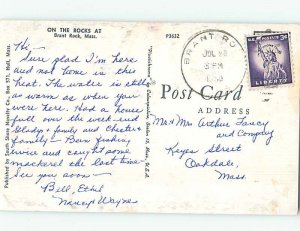 ON THE ROCKS AT
Brant Rock, Mass.
P3632
Hi,
Sure glad I'm here
and not home in this
heat. The water is still
as warm as when you
were here. Had a house
full over the week-end
Gladys & family and Chester &
family — Been fishing
twice and caught some
mackerel the last time
See you soon —
Bill, Ethel
Nancy & Wayne
Published by South Shore Novelty Co. Box 271, Hull, Mass.
BRANT RO
JUL 28
5 PM
U.S. POSTAGE 3¢
LIBERTY
Post Card
ADDRESS
Mr and Mrs Arthur Fancy
and Company
Keyes Street
Oakdale,
Mass.